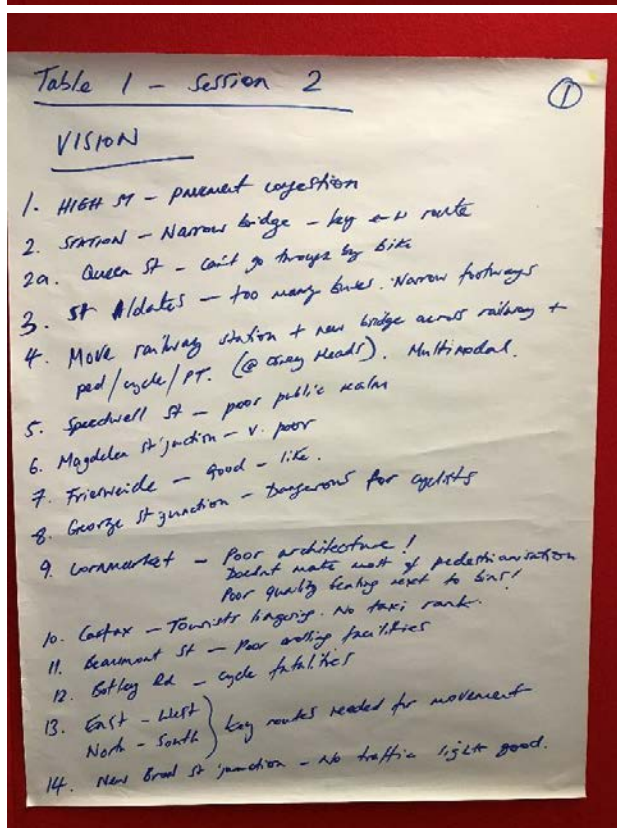 Table 1 - Session 2
①
VISION
1. HIGH ST - pavement congestion
2. STATION - Narrow bridge - key e-w route
2a. Queen St - can't go through by bike
3. St Aldates - too many buses. Narrow footways
4. Move railway station + new bridge across railway +
ped/cycle/PT. (@ Osney Meads). Multimodal.
5. Speedwell St - poor public realm
6. Magdalen St junction - v. poor
7. Frieswide - Good - like.
8. George St junction - Dangerous for cyclists
9. Cornmarket - Poor architecture!
Doesn't make most of pedestrianisation
Poor quality seating next to bins!
10. Carfax - Tourists lingering. No taxi rank.
11. Beaumont St - Poor crossing facilities
12. Botley Rd - cycle fatalities
13. East - West
North - South } key routes needed for movement
14. New Broad St junction - No traffic lights good.